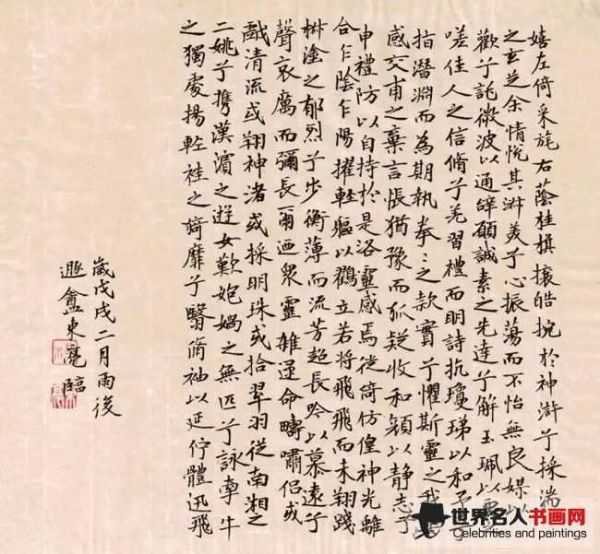 嬉左倚采旄右蔭桂旗攘皓捥於神滸兮採湍
之玄芝余情悅其淑美兮心振蕩而不怡無良媒以
歡兮託微波以通辭願誠素之先達兮解玉珮以
嗟佳人之信脩兮羌習禮而明詩抗瓊珶以和予
指潛淵而為期執拳〻之款實兮懼斯靈之我
感交甫之棄言悵猶豫而狐疑收和顏以靜志兮
申禮防以自持於是洛靈感焉徙倚仿偟神光離
合乍陰乍陽擢輕軀以鶴立若將飛飛而未翔踐
椒塗之郁烈兮步衡薄而流芳超長吟以慕遠兮
聲哀厲而彌長爾迺眾靈雜遝命疇嘯侶或
戲清流或翔神渚或採明珠或拾翠羽從南湘之
二姚兮攜漢濱之遊女歎匏媧之無匹兮詠牽牛
之獨處揚輕袿之猗靡兮翳脩袖以延佇體迅飛
歲戊戌二月雨後
盦東亮臨
世界名人书画网
Celebrities and paintings